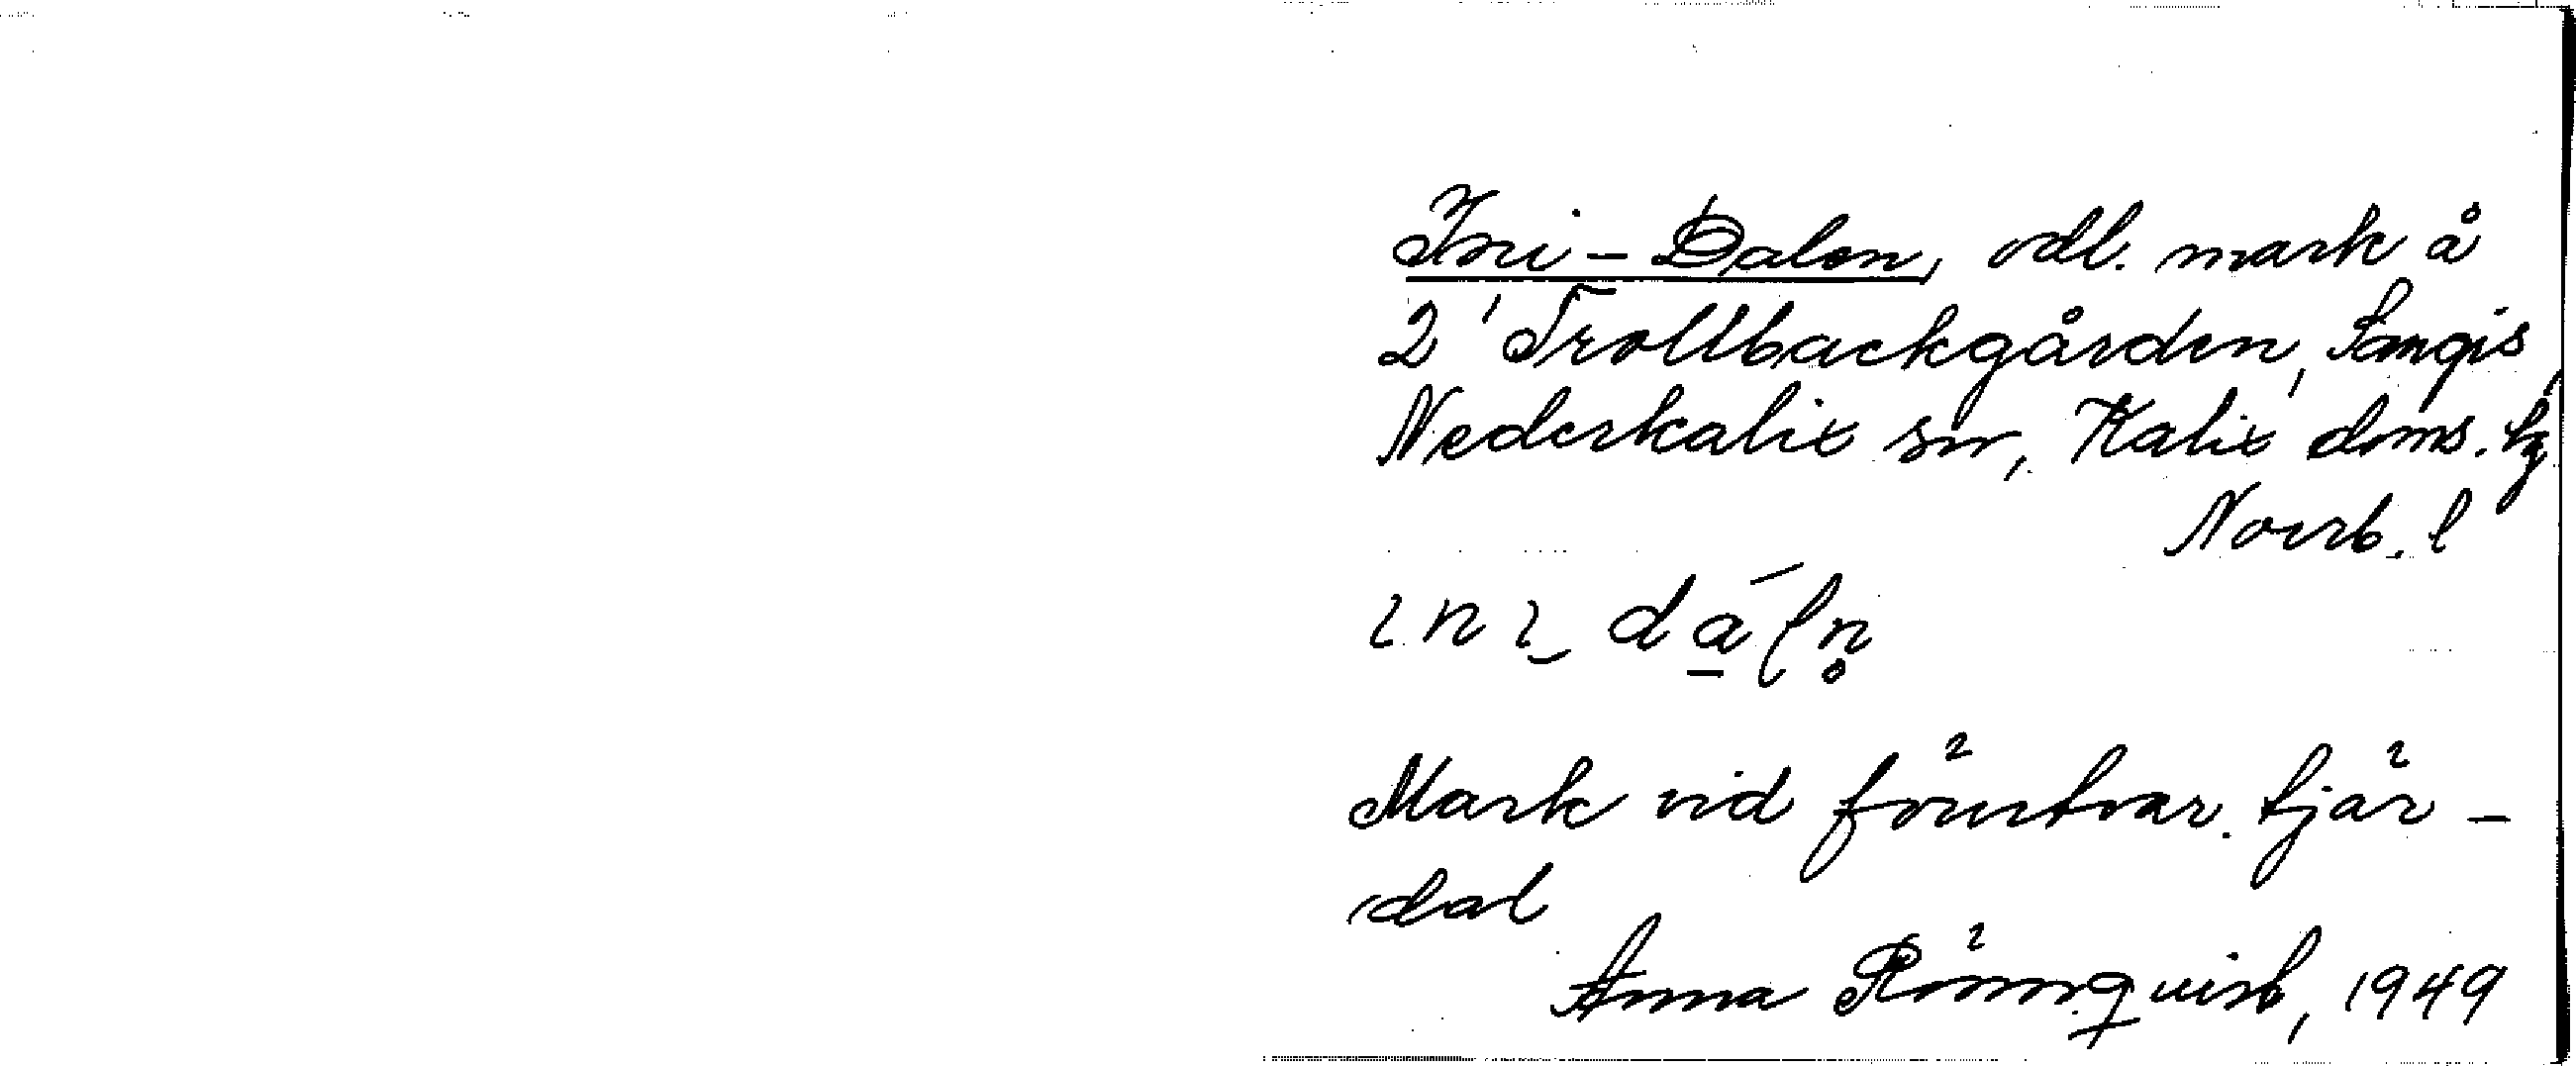 Ini - Dalen, odl. mark å
2' Trollbackgården, Sangis
Nederkalix sn, Kalix doms. hg
Norrb. l
ini dáln̥
Mark vid förutvar. tjär-
dal
Anna Rönnqvist, 1949